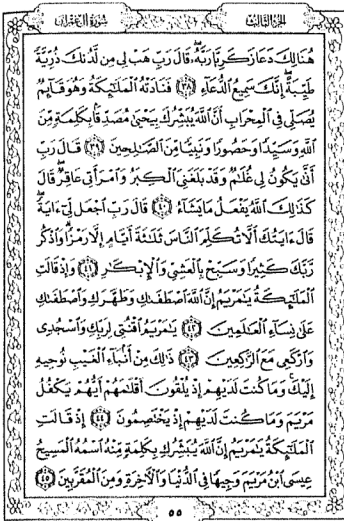 الجزء الثالث
سورة آل عمران
هُنَالِكَ دَعَا زَكَرِيَّا رَبَّهُۥ قَالَ رَبِّ هَبْ لِى مِن لَّدُنكَ ذُرِّيَّةً
طَيِّبَةً إِنَّكَ سَمِيعُ الدُّعَآءِ ﴿٣٨﴾ فَنَادَتْهُ الْمَلَـٰٓئِكَةُ وَهُوَ قَآئِمٌ
يُصَلِّى فِى الْمِحْرَابِ أَنَّ اللَّهَ يُبَشِّرُكَ بِيَحْيَىٰ مُصَدِّقًا بِكَلِمَةٍ مِّنَ
اللَّهِ وَسَيِّدًا وَحَصُورًا وَنَبِيًّا مِّنَ الصَّـٰلِحِينَ ﴿٣٩﴾ قَالَ رَبِّ
أَنَّىٰ يَكُونُ لِى غُلَـٰمٌ وَقَدْ بَلَغَنِىَ الْكِبَرُ وَامْرَأَتِى عَاقِرٌ قَالَ
كَذَٰلِكَ اللَّهُ يَفْعَلُ مَا يَشَآءُ ﴿٤٠﴾ قَالَ رَبِّ اجْعَل لِّىٓ ءَايَةً
قَالَ ءَايَتُكَ أَلَّا تُكَلِّمَ النَّاسَ ثَلَـٰثَةَ أَيَّامٍ إِلَّا رَمْزًا وَاذْكُر
رَّبَّكَ كَثِيرًا وَسَبِّحْ بِالْعَشِىِّ وَالْإِبْكَـٰرِ ﴿٤١﴾ وَإِذْ قَالَتِ
الْمَلَـٰٓئِكَةُ يَـٰمَرْيَمُ إِنَّ اللَّهَ اصْطَفَىٰكِ وَطَهَّرَكِ وَاصْطَفَىٰكِ
عَلَىٰ نِسَآءِ الْعَـٰلَمِينَ ﴿٤٢﴾ يَـٰمَرْيَمُ اقْنُتِى لِرَبِّكِ وَاسْجُدِى
وَارْكَعِى مَعَ الرَّٰكِعِينَ ﴿٤٣﴾ ذَٰلِكَ مِنْ أَنۢبَآءِ الْغَيْبِ نُوحِيهِ
إِلَيْكَ وَمَا كُنتَ لَدَيْهِمْ إِذْ يُلْقُونَ أَقْلَـٰمَهُمْ أَيُّهُمْ يَكْفُلُ
مَرْيَمَ وَمَا كُنتَ لَدَيْهِمْ إِذْ يَخْتَصِمُونَ ﴿٤٤﴾ إِذْ قَالَتِ
الْمَلَـٰٓئِكَةُ يَـٰمَرْيَمُ إِنَّ اللَّهَ يُبَشِّرُكِ بِكَلِمَةٍ مِّنْهُ اسْمُهُ الْمَسِيحُ
عِيسَى ابْنُ مَرْيَمَ وَجِيهًا فِى الدُّنْيَا وَالْـَٔاخِرَةِ وَمِنَ الْمُقَرَّبِينَ ﴿٤٥﴾
٥٥